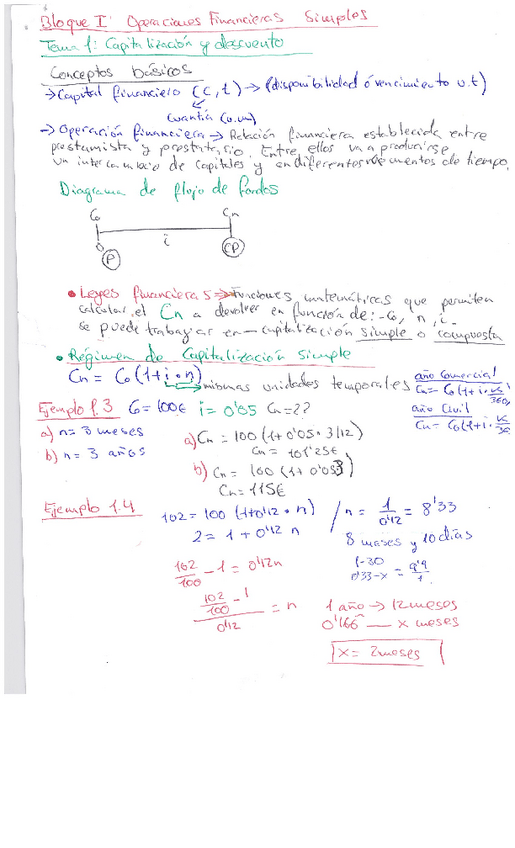 Bloque I: Operaciones Financieras Simples
Tema 1: Capitalización y descuento
Conceptos básicos
→ Capital financiero (C, t) → (disponibilidad ó vencimiento u.t)
Cuantía (u.m)
→ Operación financiera → Relación financiera establecida entre
prestamista y prestatario. Entre ellos va a producirse
un intercambio de capitales y en diferentes momentos de tiempo.
Diagrama de flujo de fondos
C₀ Cn
i
P CP
• Leyes financieras → Funciones matemáticas que permiten
calcular el Cn a devolver en función de: - C₀, n, i.
se puede trabajar en → capitalización simple o compuesta
• Régimen de Capitalización Simple
Cn = C₀(1+i·n)
→ mismas unidades temporales
año Comercial
Cn = C₀(1+i·
360
año Civil
Cn = C₀(1+i·
Ejemplo 1.3 C₀ = 100€ i = 0'05 Cn = ??
a) n = 3 meses
b) n = 3 años
a) Cn = 100 (1+0'05·3/12)
Cn = 101'25€
b) Cn = 100 (1+0'05·3)
Cn = 115€
Ejemplo 1.4
102 = 100 (1+0'12·n)
2 = 1 + 0'12 n
102/100 - 1 = 0'12n
(102/100 - 1)/0'12 = n
/ n = 1/0'12 = 8'33
8 meses y 10 días
1-30
0'33-x = 9'9/1
1 año → 12 meses
0'166 — x meses
x = 2 meses